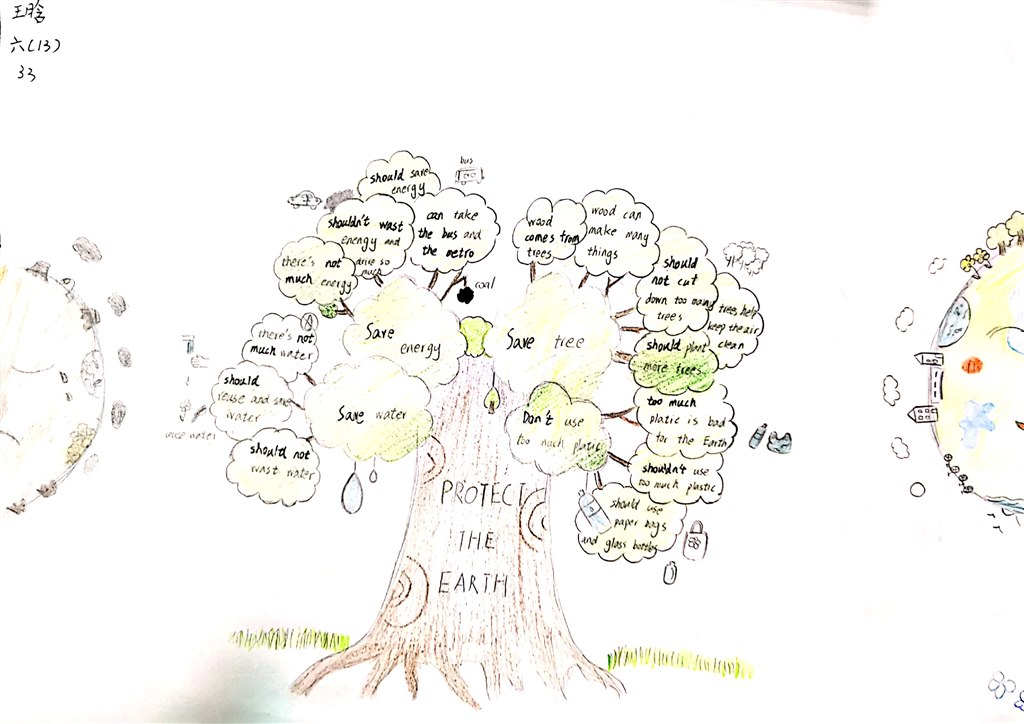 王晗
六(13)
33
should save
energy
bus
shouldn't wast
energy and
drive so
much
can take
the bus and
the metro
there's not
much energy
coal
Save
energy
there's not
much water
should
reuse and save
water
reuse water
should not
wast water
Save water
wood
comes from
trees
wood can
make many
things
should
not cut
down too many
trees
trees help
keep the air
clean
should plant
more trees
Save tree
Don't use
too much platic
too much
platic is bad
for the Earth
shouldn't use
too much plastic
should use
paper bags
and glass bottles
PROTECT
THE
EARTH